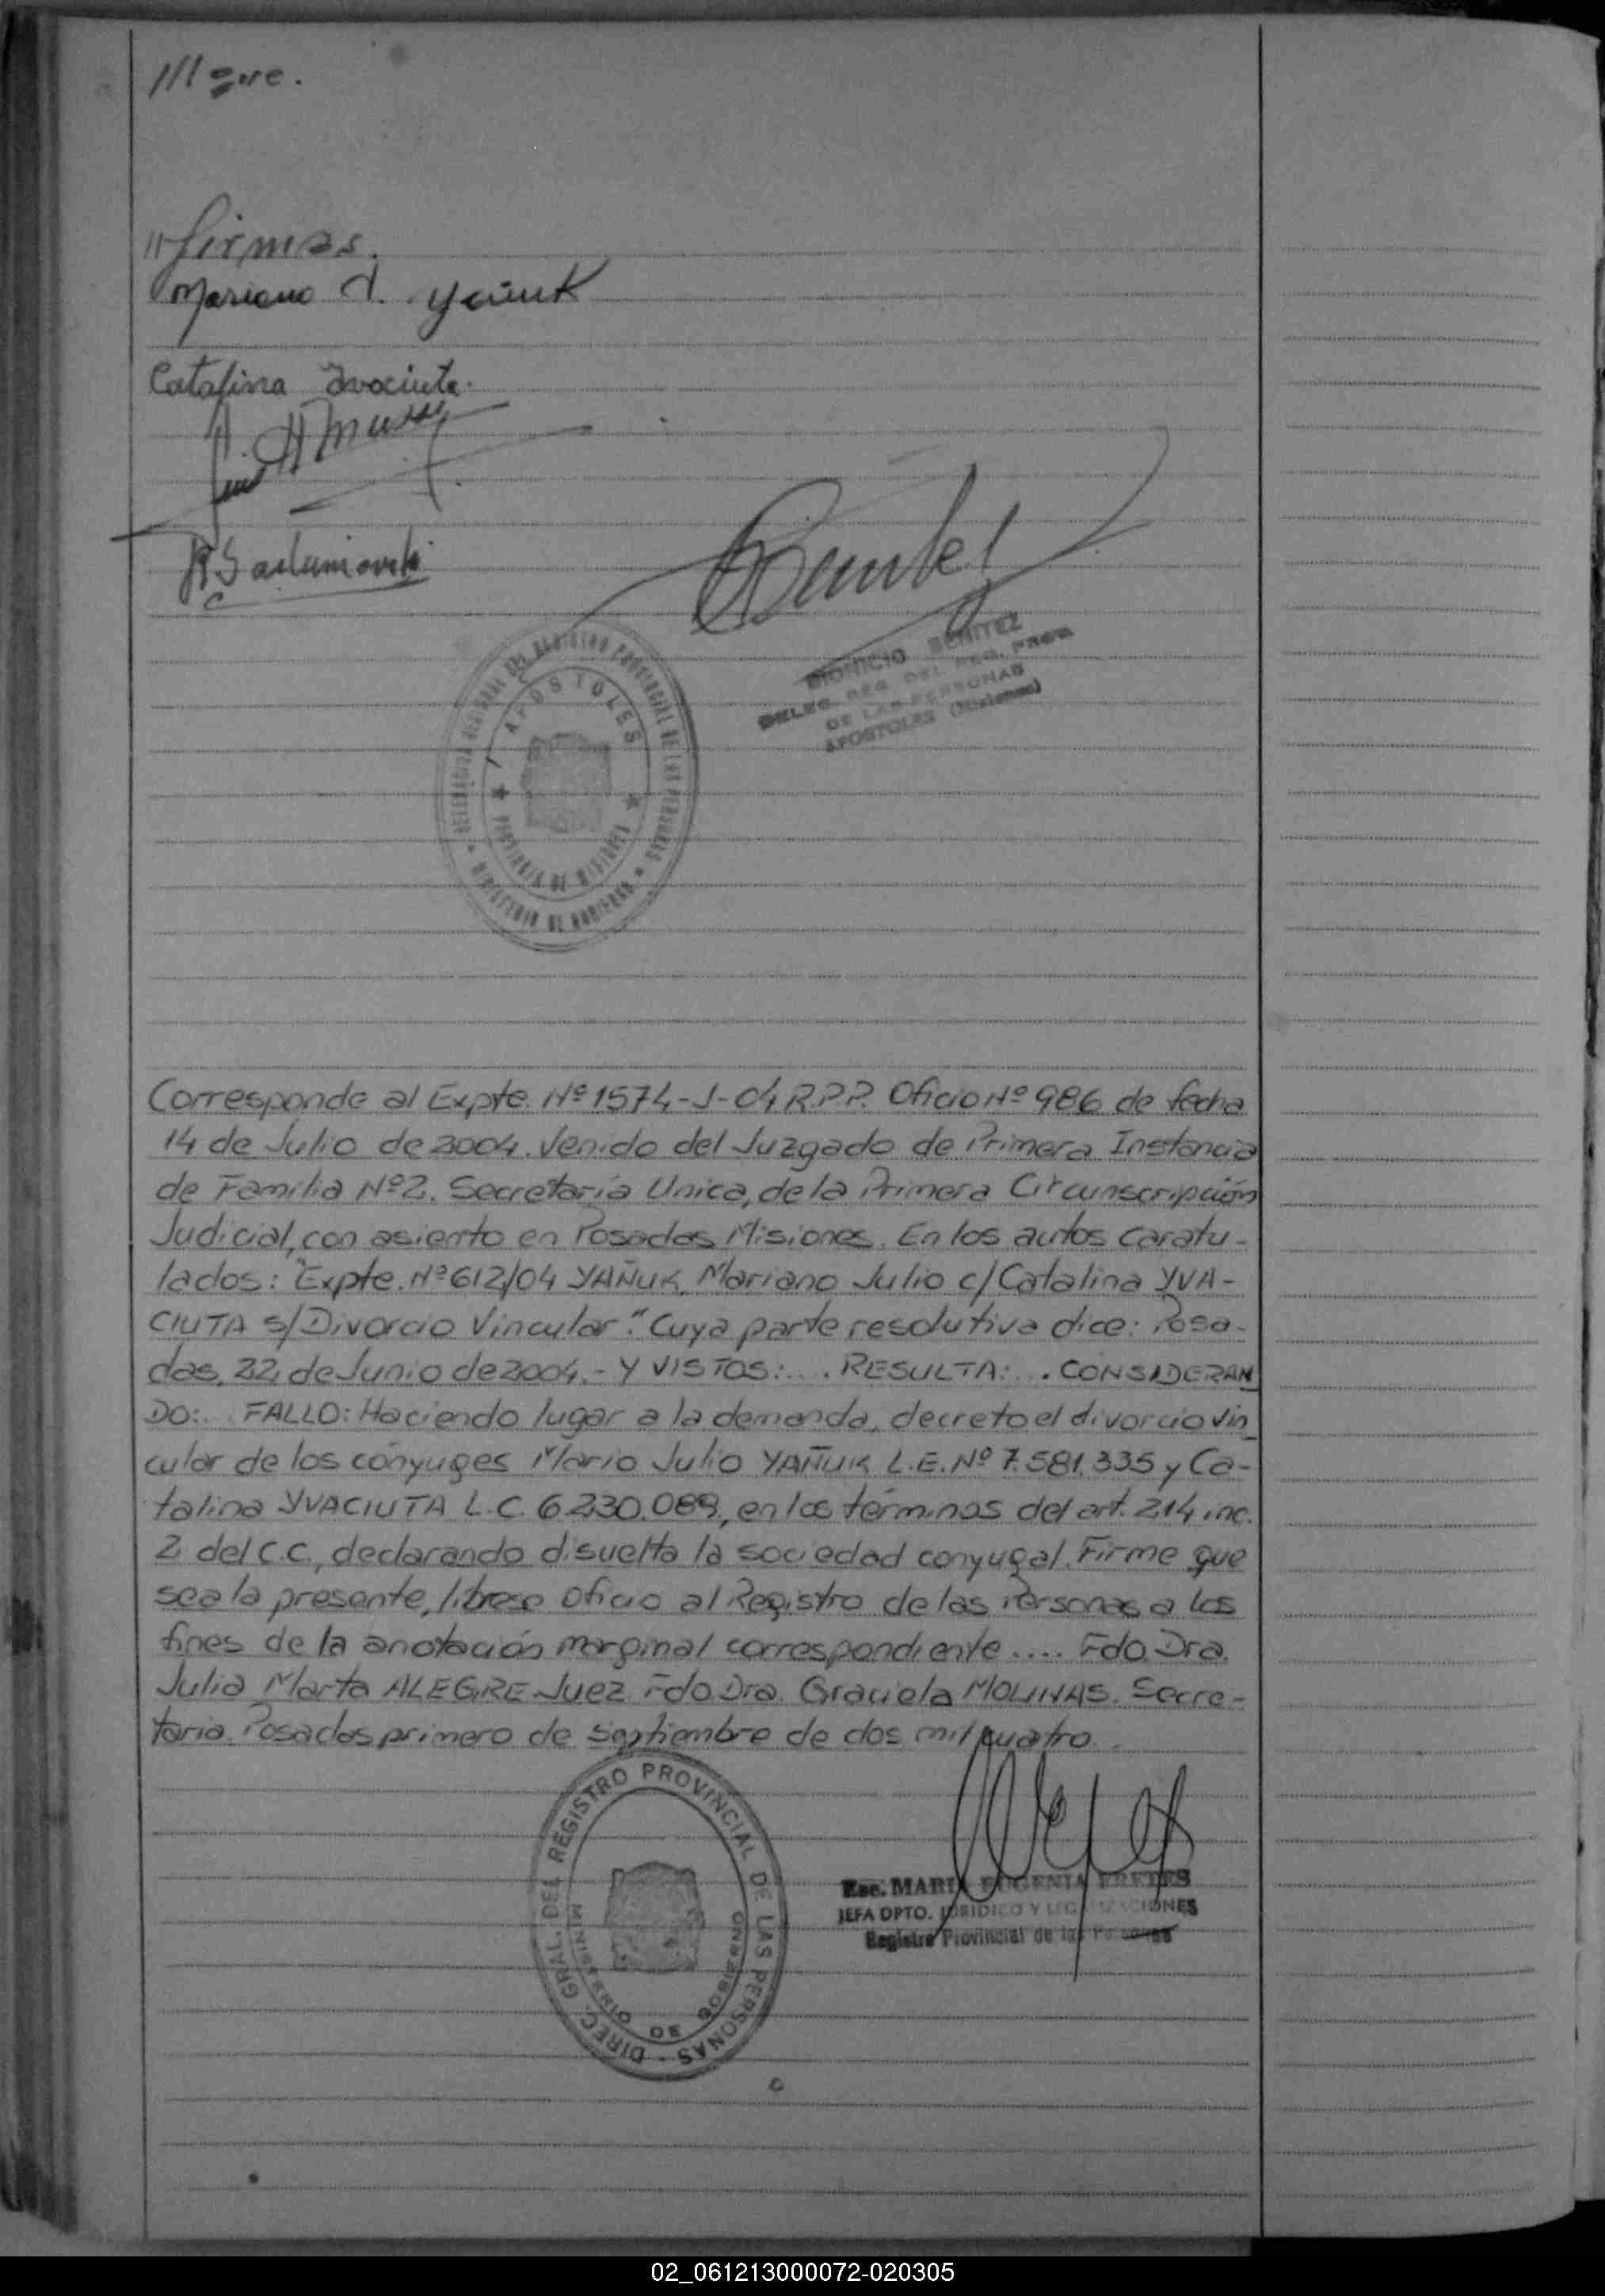 ///
///firmas.
Mariano J. Yañuk
Catalina Ivaciuta.
DELEGACION REGIONAL DEL REGISTRO PROVINCIAL DE LAS PERSONAS
APOSTOLES
PROVINCIA DE MISIONES
MINISTERIO DE GOBIERNO
DIONICIO BENITEZ
DELEG. REG. DEL REG. PROV.
DE LAS PERSONAS
APOSTOLES (Misiones)
Corresponde al Expte. Nº 1574-J-04 R.P.P. Oficio Nº 986 de fecha
14 de Julio de 2004. Venido del Juzgado de Primera Instancia
de Familia Nº2. Secretaría Unica, de la Primera Circunscripción
Judicial, con asiento en Posadas Misiones. En los autos caratu-
lados: "Expte. Nº 612/04 YAÑUK, Mariano Julio c/ Catalina YVA-
CIUTA s/ Divorcio Vincular." Cuya parte resolutiva dice: Posa-
das, 22 de Junio de 2004.- Y VISTOS:... RESULTA:.. CONSIDERAN
DO:.. FALLO: Haciendo lugar a la demanda, decreto el divorcio vin
cular de los cónyuges Mario Julio YAÑUK L.E. Nº 7.581.335 y Ca-
talina YVACIUTA L.C. 6.230.089, en los términos del art. 214 inc.
2 del C.C, declarando disuelta la sociedad conyugal. Firme que
sea la presente, librese Oficio al Registro de las Personas a los
fines de la anotación marginal correspondiente.... Fdo. Dra.
Julia Marta ALEGRE Juez Fdo Dra. Graciela MOLINAS. Secre-
taria. Posadas primero de septiembre de dos mil cuatro.
DIREC. GRAL. DEL REGISTRO PROVINCIAL DE LAS PERSONAS -
MINISTERIO DE GOBIERNO
Esc. MARIA EUGENIA
JEFA DPTO. JURIDICO Y LEGALIZACIONES
Registro Provincial de las Personas
02_061213000072-020305